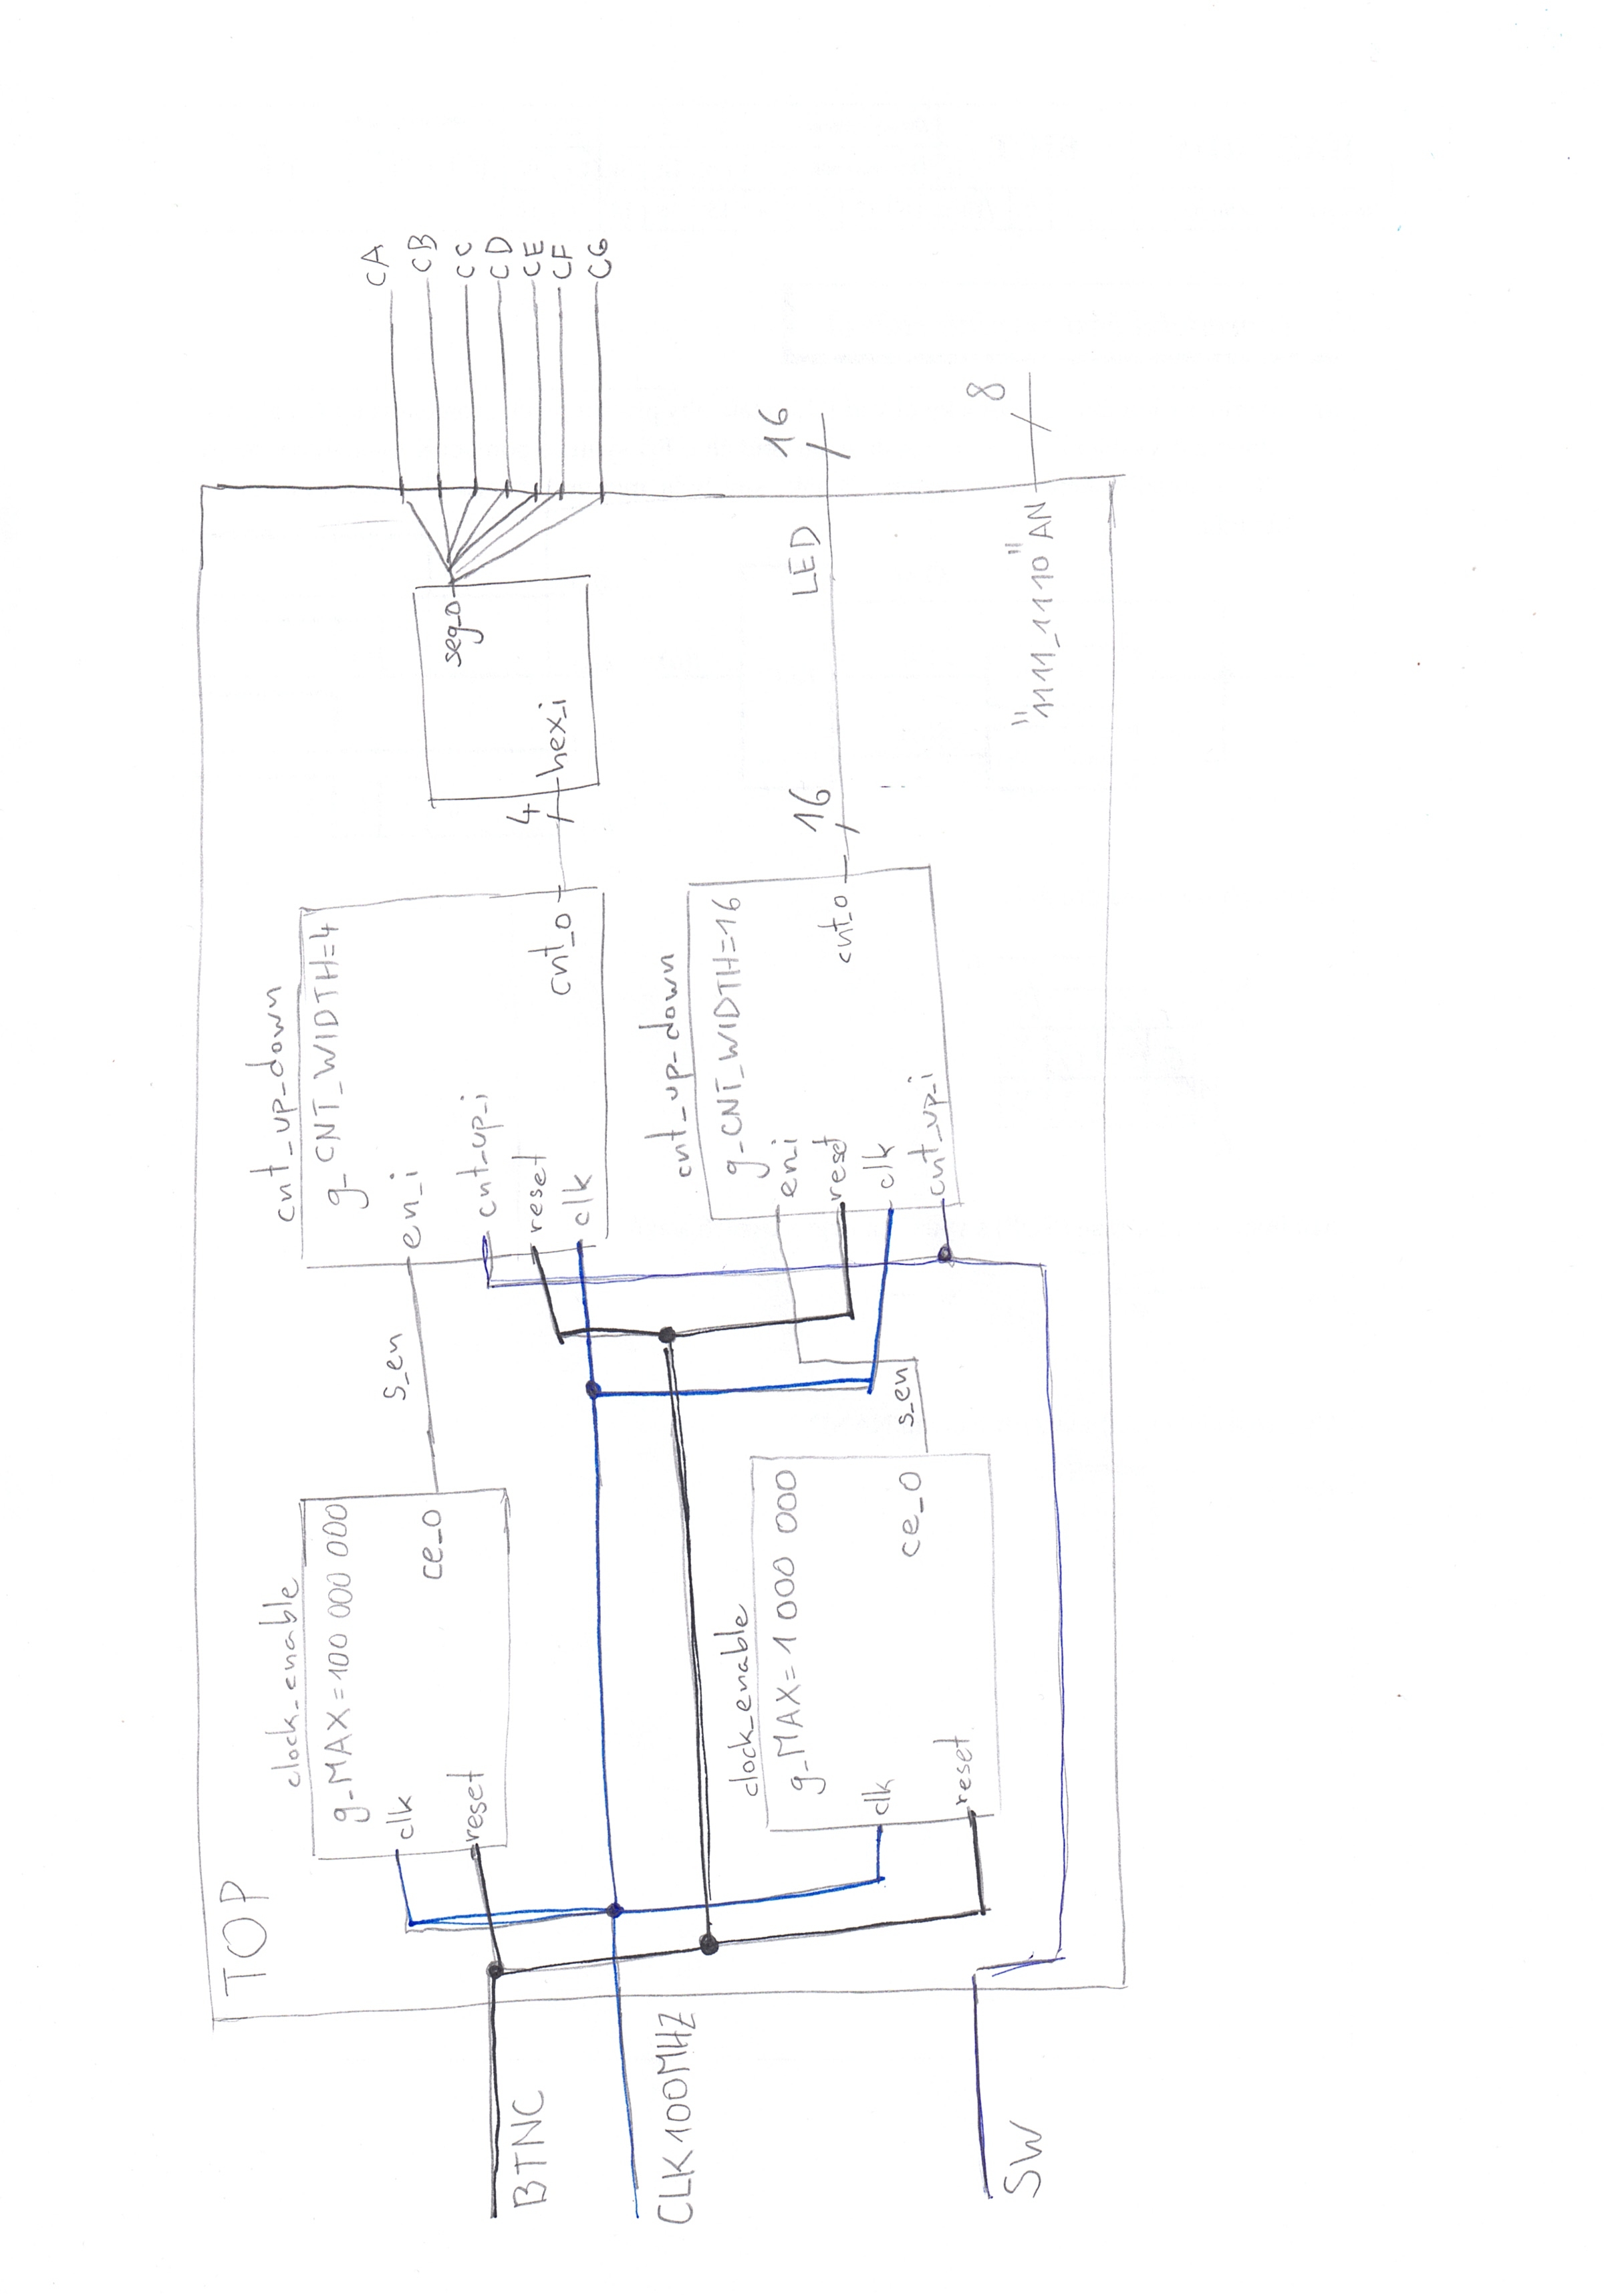 TOP
clock_enable
g_MAX=100 000 000
clk
reset
ce_o
s_en
cnt_up_down
g_CNT_WIDTH=4
en_i
cnt_up_i
reset
clk
cnt_o
4
hex_i
seg_o
CA
CB
CC
CD
CE
CF
CG
BTNC
CLK100MHZ
SW
clock_enable
g_MAX=1 000 000
clk
reset
ce_o
s_en
cnt_up_down
g_CNT_WIDTH=16
en_i
reset
clk
cnt_up_i
cnt_o
16
LED
16
"1111_1110" AN
8